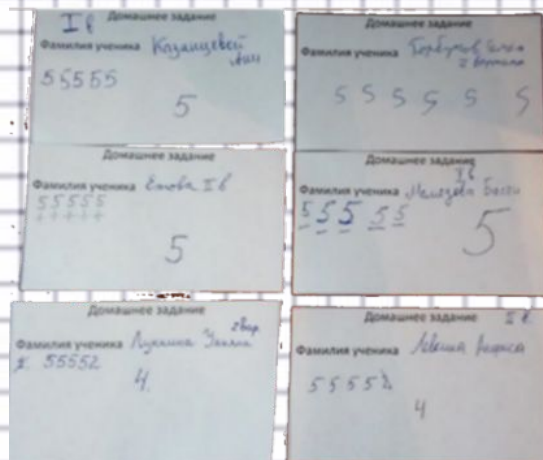 I в
Домашнее задание
Фамилия ученика Казанцевой
Ани
55555
5
Домашнее задание
Фамилия ученика
2 варианта
5 5 5 5 5 5
Домашнее задание
Фамилия ученика I в
55555
+++++
5
Домашнее задание
I в
Фамилия ученика
5 5 5 5 5
5
Домашнее задание
2 вар
Фамилия ученика
55552
4
Домашнее задание
Фамилия ученика
55552
4